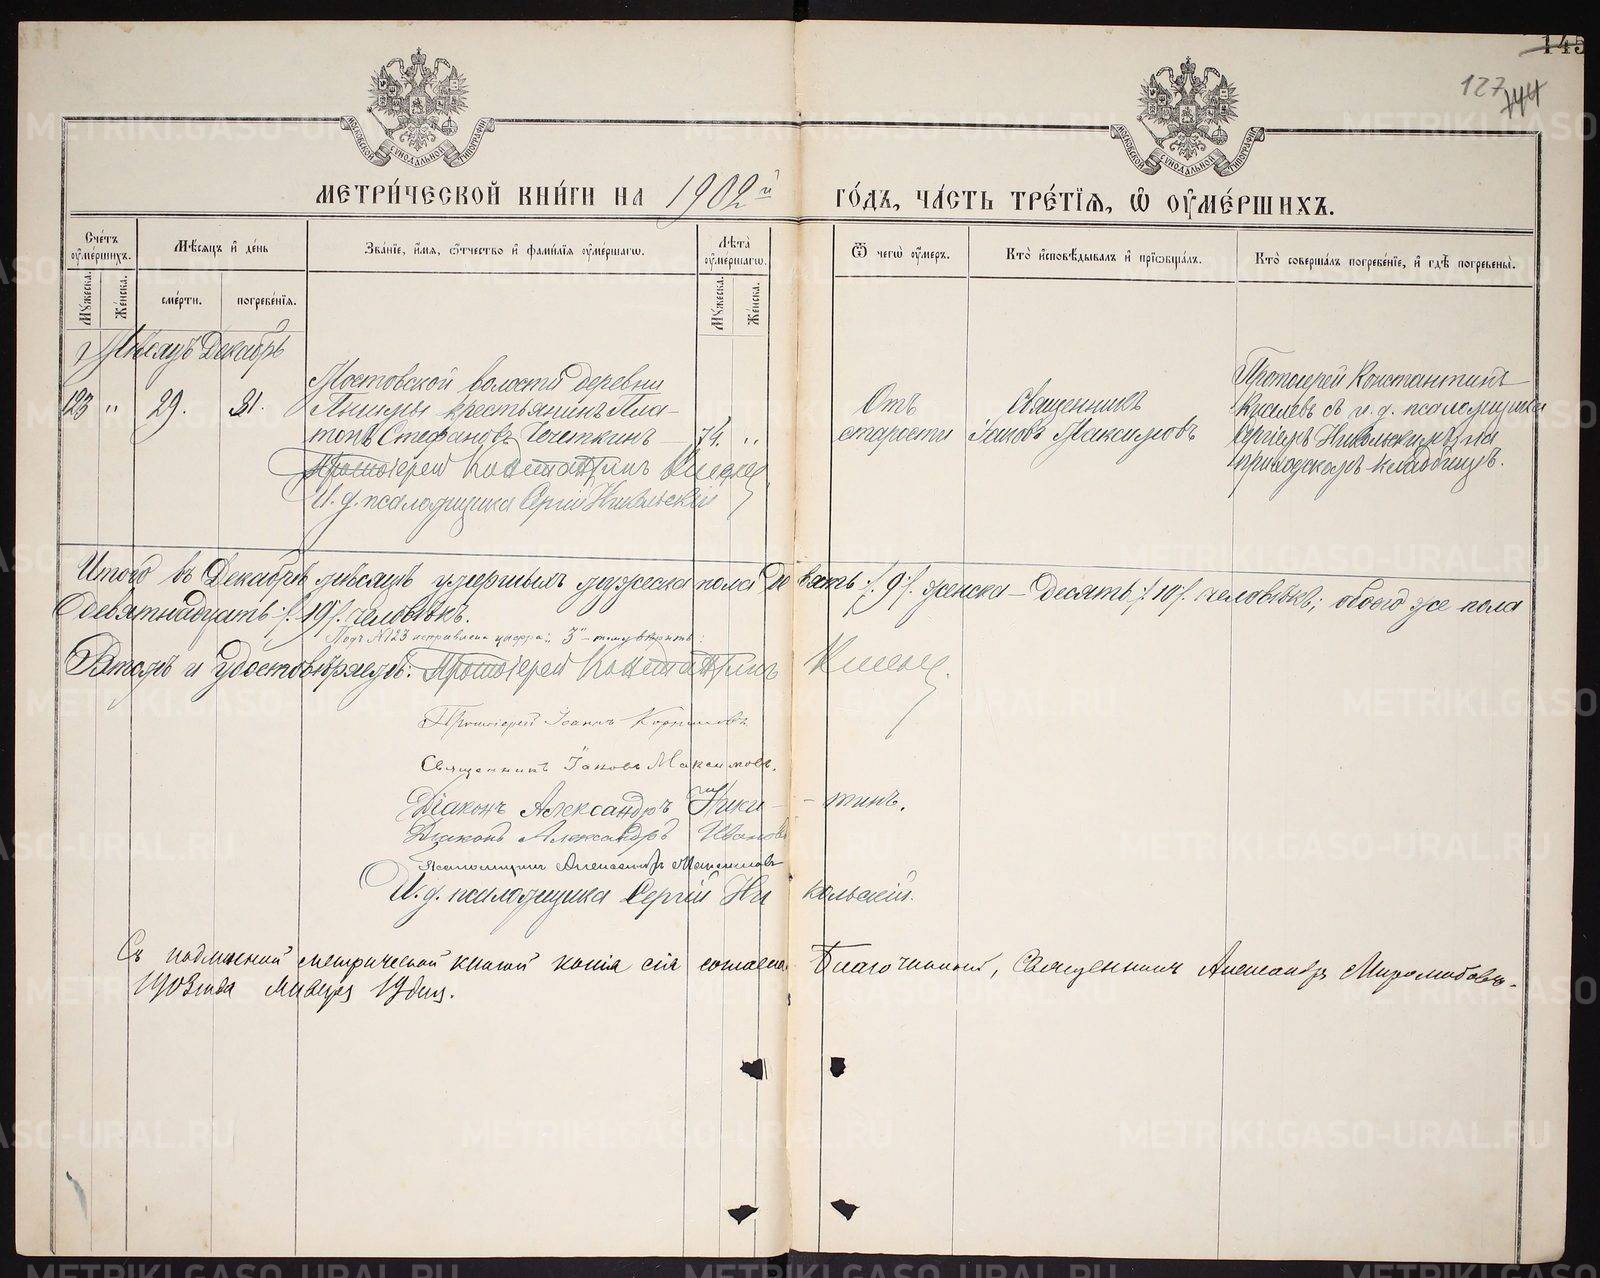 145
127 144
МОСКОВСКОЙ СѴНОДАЛЬНОЙ ТИПОГРАФІИ
МОСКОВСКОЙ СѴНОДАЛЬНОЙ ТИПОГРАФІИ
МЕТРИ́ЧЕСКОЙ КНИ́ГИ НА 1902й ГО́ДЪ, ЧА́СТЬ ТРЕ́ТІѦ, Ѡ҆ ОУ҆МЕ́РШИХЪ.
Сче́тъ оу҆ме́ршихъ.
Мѣ́сяцъ и҆ де́нь
Зва́нїе, и҆́мя, ѻ҆́тчество и҆ фами́лїя оу҆ме́ршагѡ.
Лѣ́та оу҆ме́ршагѡ.
Ѿ чегѡ̀ оу҆́меръ.
Кто̀ и҆сповѣ́дывалъ и҆ прїѡбща́лъ.
Кто̀ соверша́лъ погребе́нїе, и҆ гдѣ̀ погребены̀.
Мꙋ́жеска. Же́нска.
сме́рти. погребе́нїя.
Мꙋ́жеска. Же́нска.
Мѣсяцъ Декабрь
123 " 29. 31.
Мостовской волости деревни
крестьянинъ Пла-
тонъ Стефановъ Чечеткинъ 74. "
Протоіерей Константинъ
И. д. псаломщика Сергій Никольскій
Отъ
старости
Священникъ
Іаковъ Максимовъ
Протоіерей Константинъ
съ и. д. псаломщика
Сергіемъ Никольскимъ на
приходскомъ кладбищѣ.
Итого въ Декабрѣ мѣсяцѣ умершихъ мужеска пола девять ./. 9 ./. женска – десять ./. 10 ./. человѣкъ; обоего же пола
девятнадцать ./. 19 ./. человѣкъ.
Подъ №123 исправлена цифра: „3" – тому вѣрить:
Въ томъ и удостовѣряемъ: Протоіерей Константинъ
Протоіерей Іоаннъ Корниловъ
Священникъ Іаковъ Максимовъ.
Діаконъ Александръ Ники- - тинъ.
Діаконъ Александръ Ивановъ
Псаломщикъ Александръ
И. д. псаломщика Сергій Ни кольскій.
Съ подлинной метрической книгой копія сія согласна Благочинный, Священникъ Александръ Миролюбовъ.
1903 года Января 19 дня.
METRIKI.GASO-URAL.RU